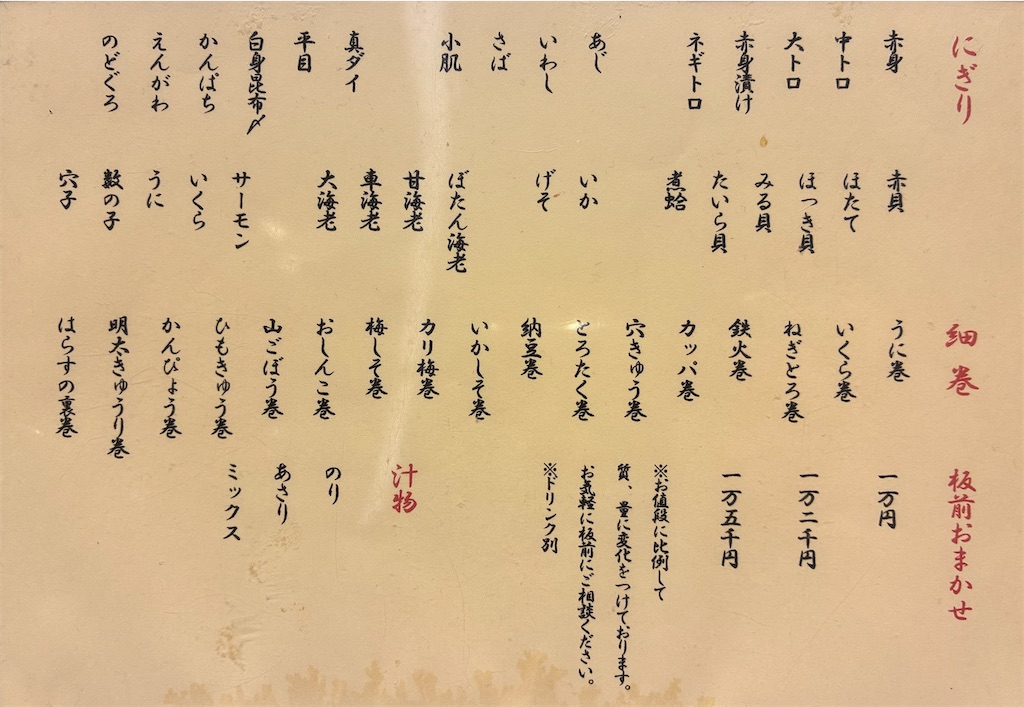 にぎり
赤身
中トロ
大トロ
赤身漬け
ネギトロ
あじ
いわし
さば
小肌
真ダイ
平目
白身昆布〆
かんぱち
えんがわ
のどぐろ
赤貝
ほたて
ほっき貝
みる貝
たいら貝
煮蛤
いか
げそ
ぼたん海老
甘海老
車海老
大海老
サーモン
いくら
うに
数の子
穴子
細巻
うに巻
いくら巻
ねぎとろ巻
鉄火巻
カッパ巻
穴きゅう巻
とろたく巻
納豆巻
いかしそ巻
カリ梅巻
梅しそ巻
おしんこ巻
山ごぼう巻
ひもきゅう巻
かんぴょう巻
明太きゅうり巻
はらすの裏巻
板前おまかせ
一万円
一万二千円
一万五千円
※お値段に比例して
質、量に変化をつけております。
お気軽に板前にご相談ください。
※ドリンク別
汁物
のり
あさり
ミックス